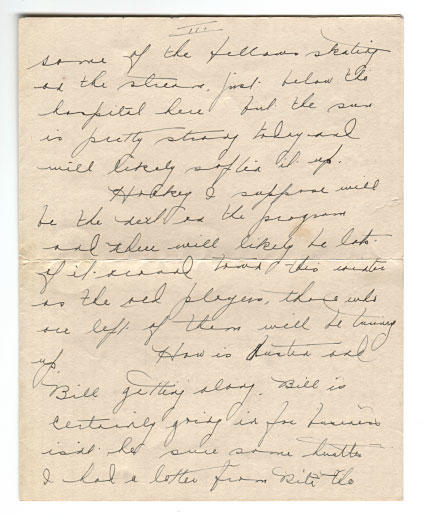 III.
some of the fellows skating
on the stream, just below the
hospital here but the sun
is pretty strong today and
will likely soften it up.
Hockey I suppose will
be the next on the program
and there will likely be lots
of it around town this winter
as the old players, those who
are left of them will be turning
up. How is and
Bill getting along. Bill is
certainly going in for business
isn't he sure some hustler
I had a letter from the